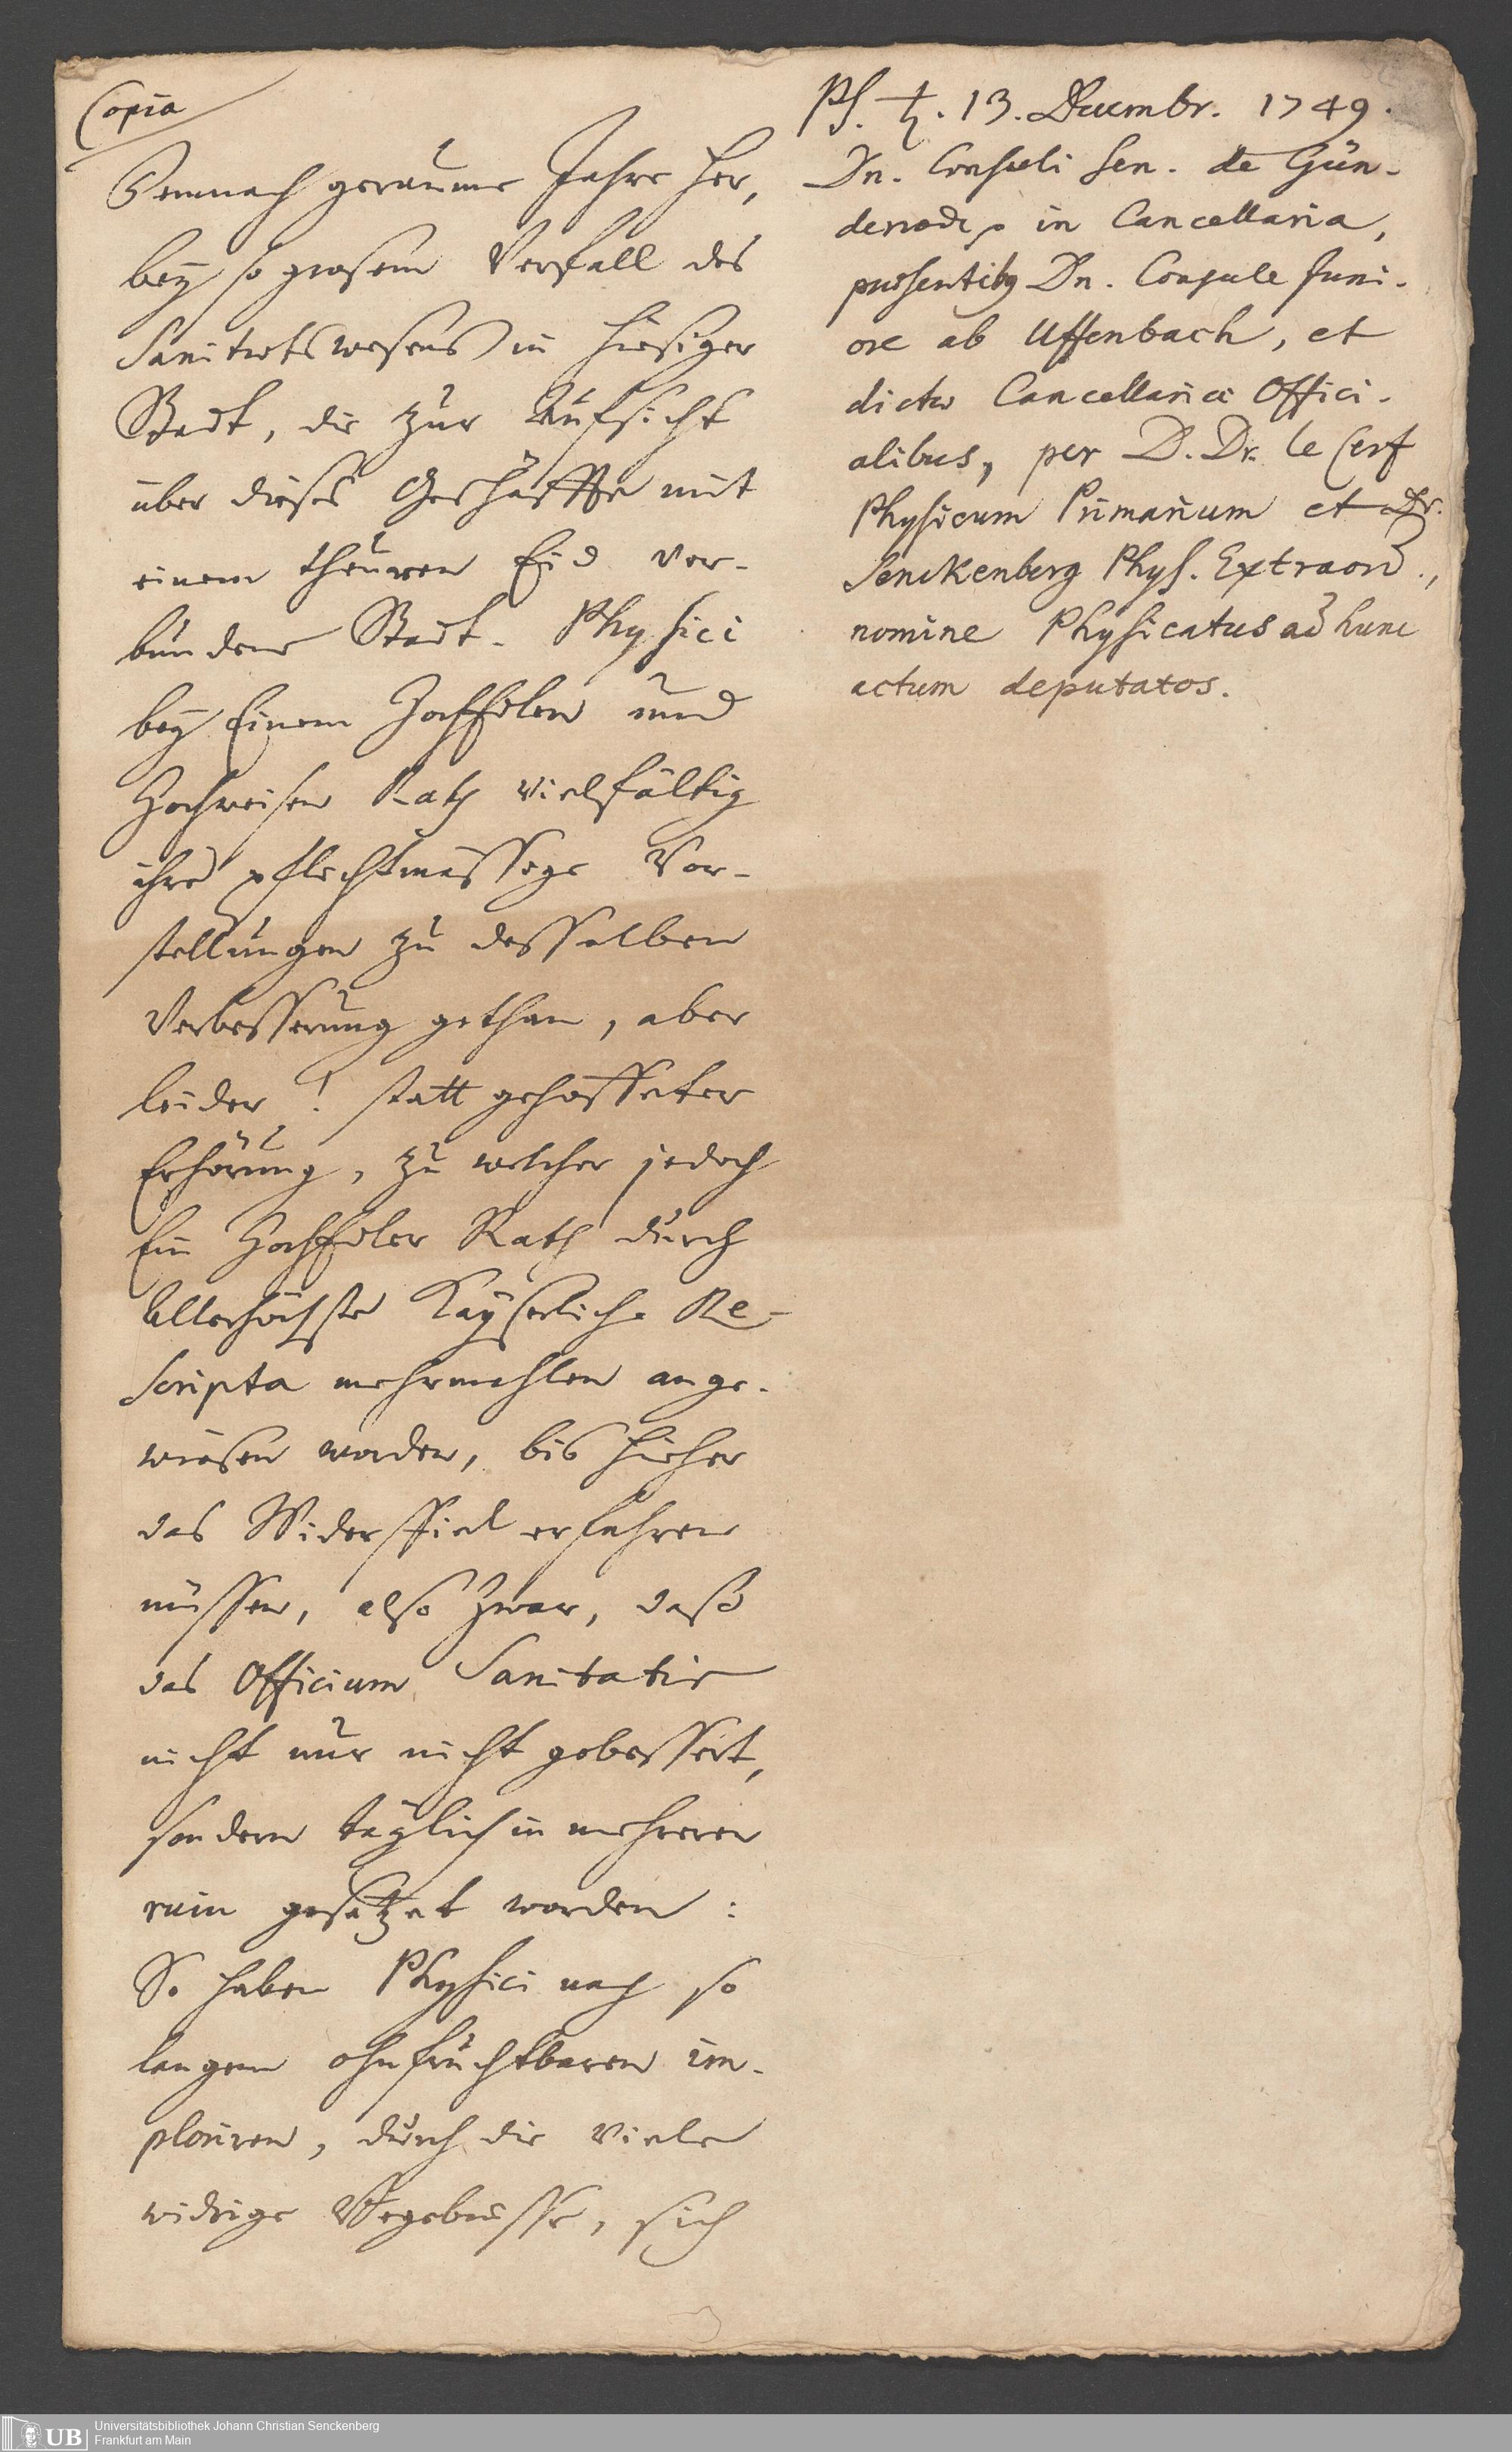 Copia
Demnach geraume Jahre her,
bey so grosem Verfall des
Sanitætswesens in hiesiger
Stadt, die zur Aufsicht
über dieses Geschäffte mit
einem theuren Eid ver-
bundene Stadt-Physici
bey Einem HochEdlen und
Hochweisen Rath vielfältig
ihre pflichtmässige Vor-
stellungen zu desselben
Verbesserung gethan, aber
leider! statt gehoffeter
Erhörung, zu welcher jedoch
Ein HochEdler Rath durch
Allerhöchste Kayserliche Re-
scripta mehrmahlen ange-
wiesen worden, bis hieher
das Widerspiel erfahren
müssen, also zwar, daß
das Officium Sanitatis
nicht nur nicht gebessert,
sondern täglich in mehreren
ruin gesetzet worden:
So haben Physici nach so
langem ohnfruchtbaren im-
ploriren, durch die viele
widrige Begebnisse, sich
Ps. ♄. 13. Decembr. 1749.
Dn. Consuli Sen. de Gün-
derrode in Cancellaria,
præsentibq Dn. Consule Juni-
ore ab Uffenbach, et
dictæ Cancellariæ Offici-
alibus, per D. Dr. le Cerf
Physicum Primarium et Dr.
Senckenberg Phys. Extraord.,
nomine Physicatus ad hunc
actum deputatos.
UB
Universitätsbibliothek Johann Christian Senckenberg
Frankfurt am Main